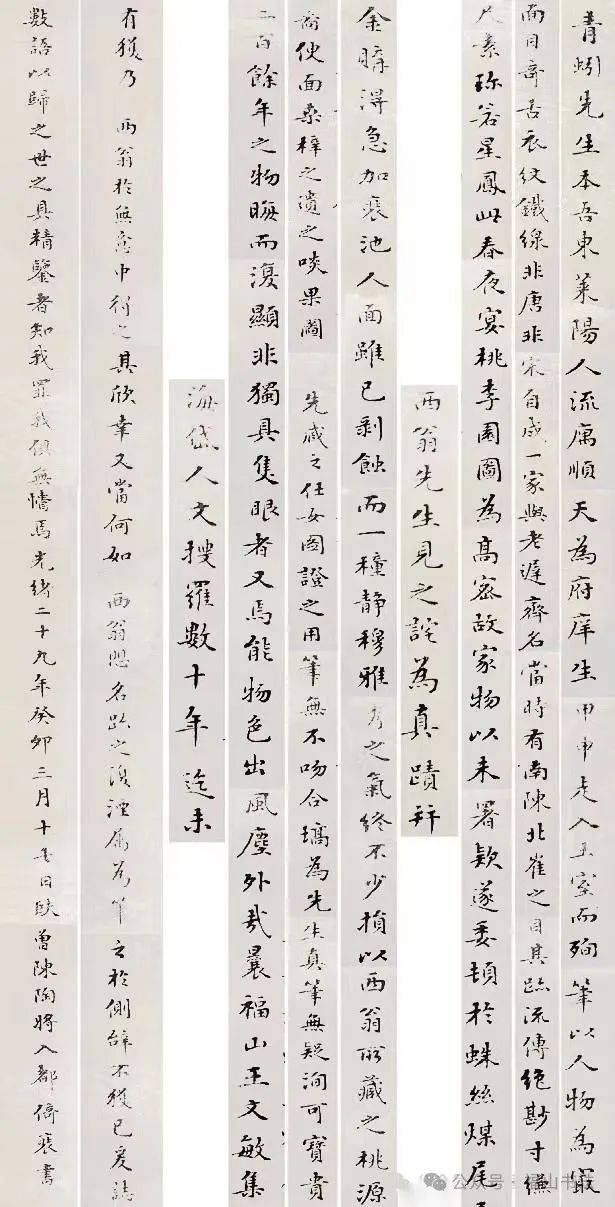 青蚓先生本吾東萊陽人流寓順天為府庠生甲申走入土室而殉 筆以人物為最
面目奇古衣紋鐵線非唐非宋自成一家與老遲齊名當時有南陳北崔之目其跡流傳絕尠寸縑
尺素珍若星鳳此春夜宴桃李園圖為高密故家物以未署款遂委頓於蛛絲煤尾
西翁先生見之詫為真蹟并
金購得急加裝池人面雖已剝蝕而一種靜穆雅秀之氣終不少損以西翁所藏之桃源
便面桑梓之遺之啖果圖 先藏之仕女圖證之用筆無不吻合塙為先生真筆無疑洵可寶貴
二百餘年之物晦而復顯非獨具隻眼者又焉能物色出風塵外哉曩福山王文敏集
海岱人文搜羅數十年迄未
有獲乃 西翁於無意中得之其欣幸又當何如 西翁恐名跡之復湮屬為筆之於側辭不獲已爰誌
數語以歸之世之具精鑒者知我罪我俱無焉光緒二十九年癸卯三月十日曾陳陶將入都倚裝書